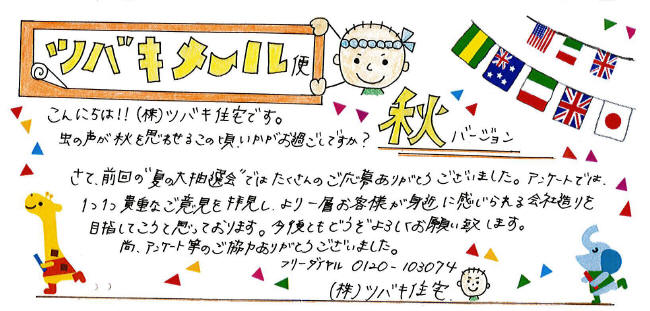 ツバキメール便
秋バージョン
こんにちは!! (株)ツバキ住宅です。
虫の声が秋を思わせるこの頃いかがお過ごしですか？
さて、前回の"夏の大抽選会"ではたくさんのご応募ありがとうございました。アンケートでは、
1つ1つ貴重なご意見を拝見し、より一層お客様が身近に感じられる会社造りを
目指してこうと思っております。今後ともどうぞよろしくお願い致します。
尚、アンケート等のご協力ありがとうございました。
フリーダイヤル 0120-103074
(株)ツバキ住宅